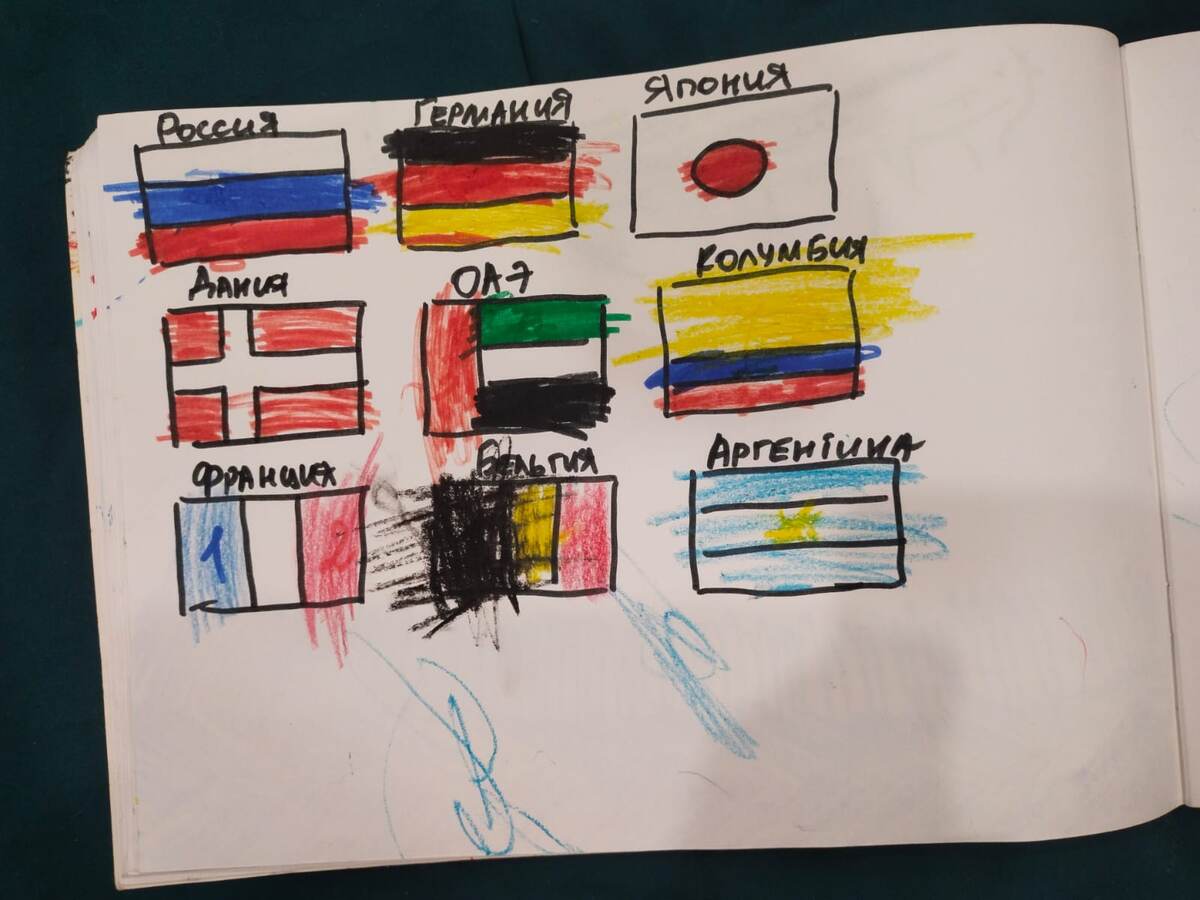 РОССИЯ
ГЕРМАНИЯ
ЯПОНИЯ
ДАНИЯ
ОАЭ
КОЛУМБИЯ
ФРАНЦИЯ
БЕЛЬГИЯ
АРГЕНТИНА
1
2